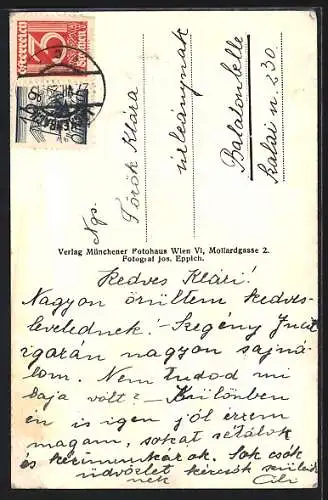 Österreich
3
Groschen
8
Ngs.
Török Klára
úrleánynak
Balatonlelle
Kalai u. 230.
Verlag Münchener Fotohaus Wien VI, Mollardgasse 2.
Fotograf Jos. Eppich.
Kedves Klári!
Nagyon örültem kedves
levelednek! - Szegény
igazán nagyon sajná-
lom. Nem tudod mi
baja volt? - Különben
én is igen jól érzem
magam, sokat sétálok
és kézimunkázok. Sok csók
üdvözlet kedves szüleid-
nek